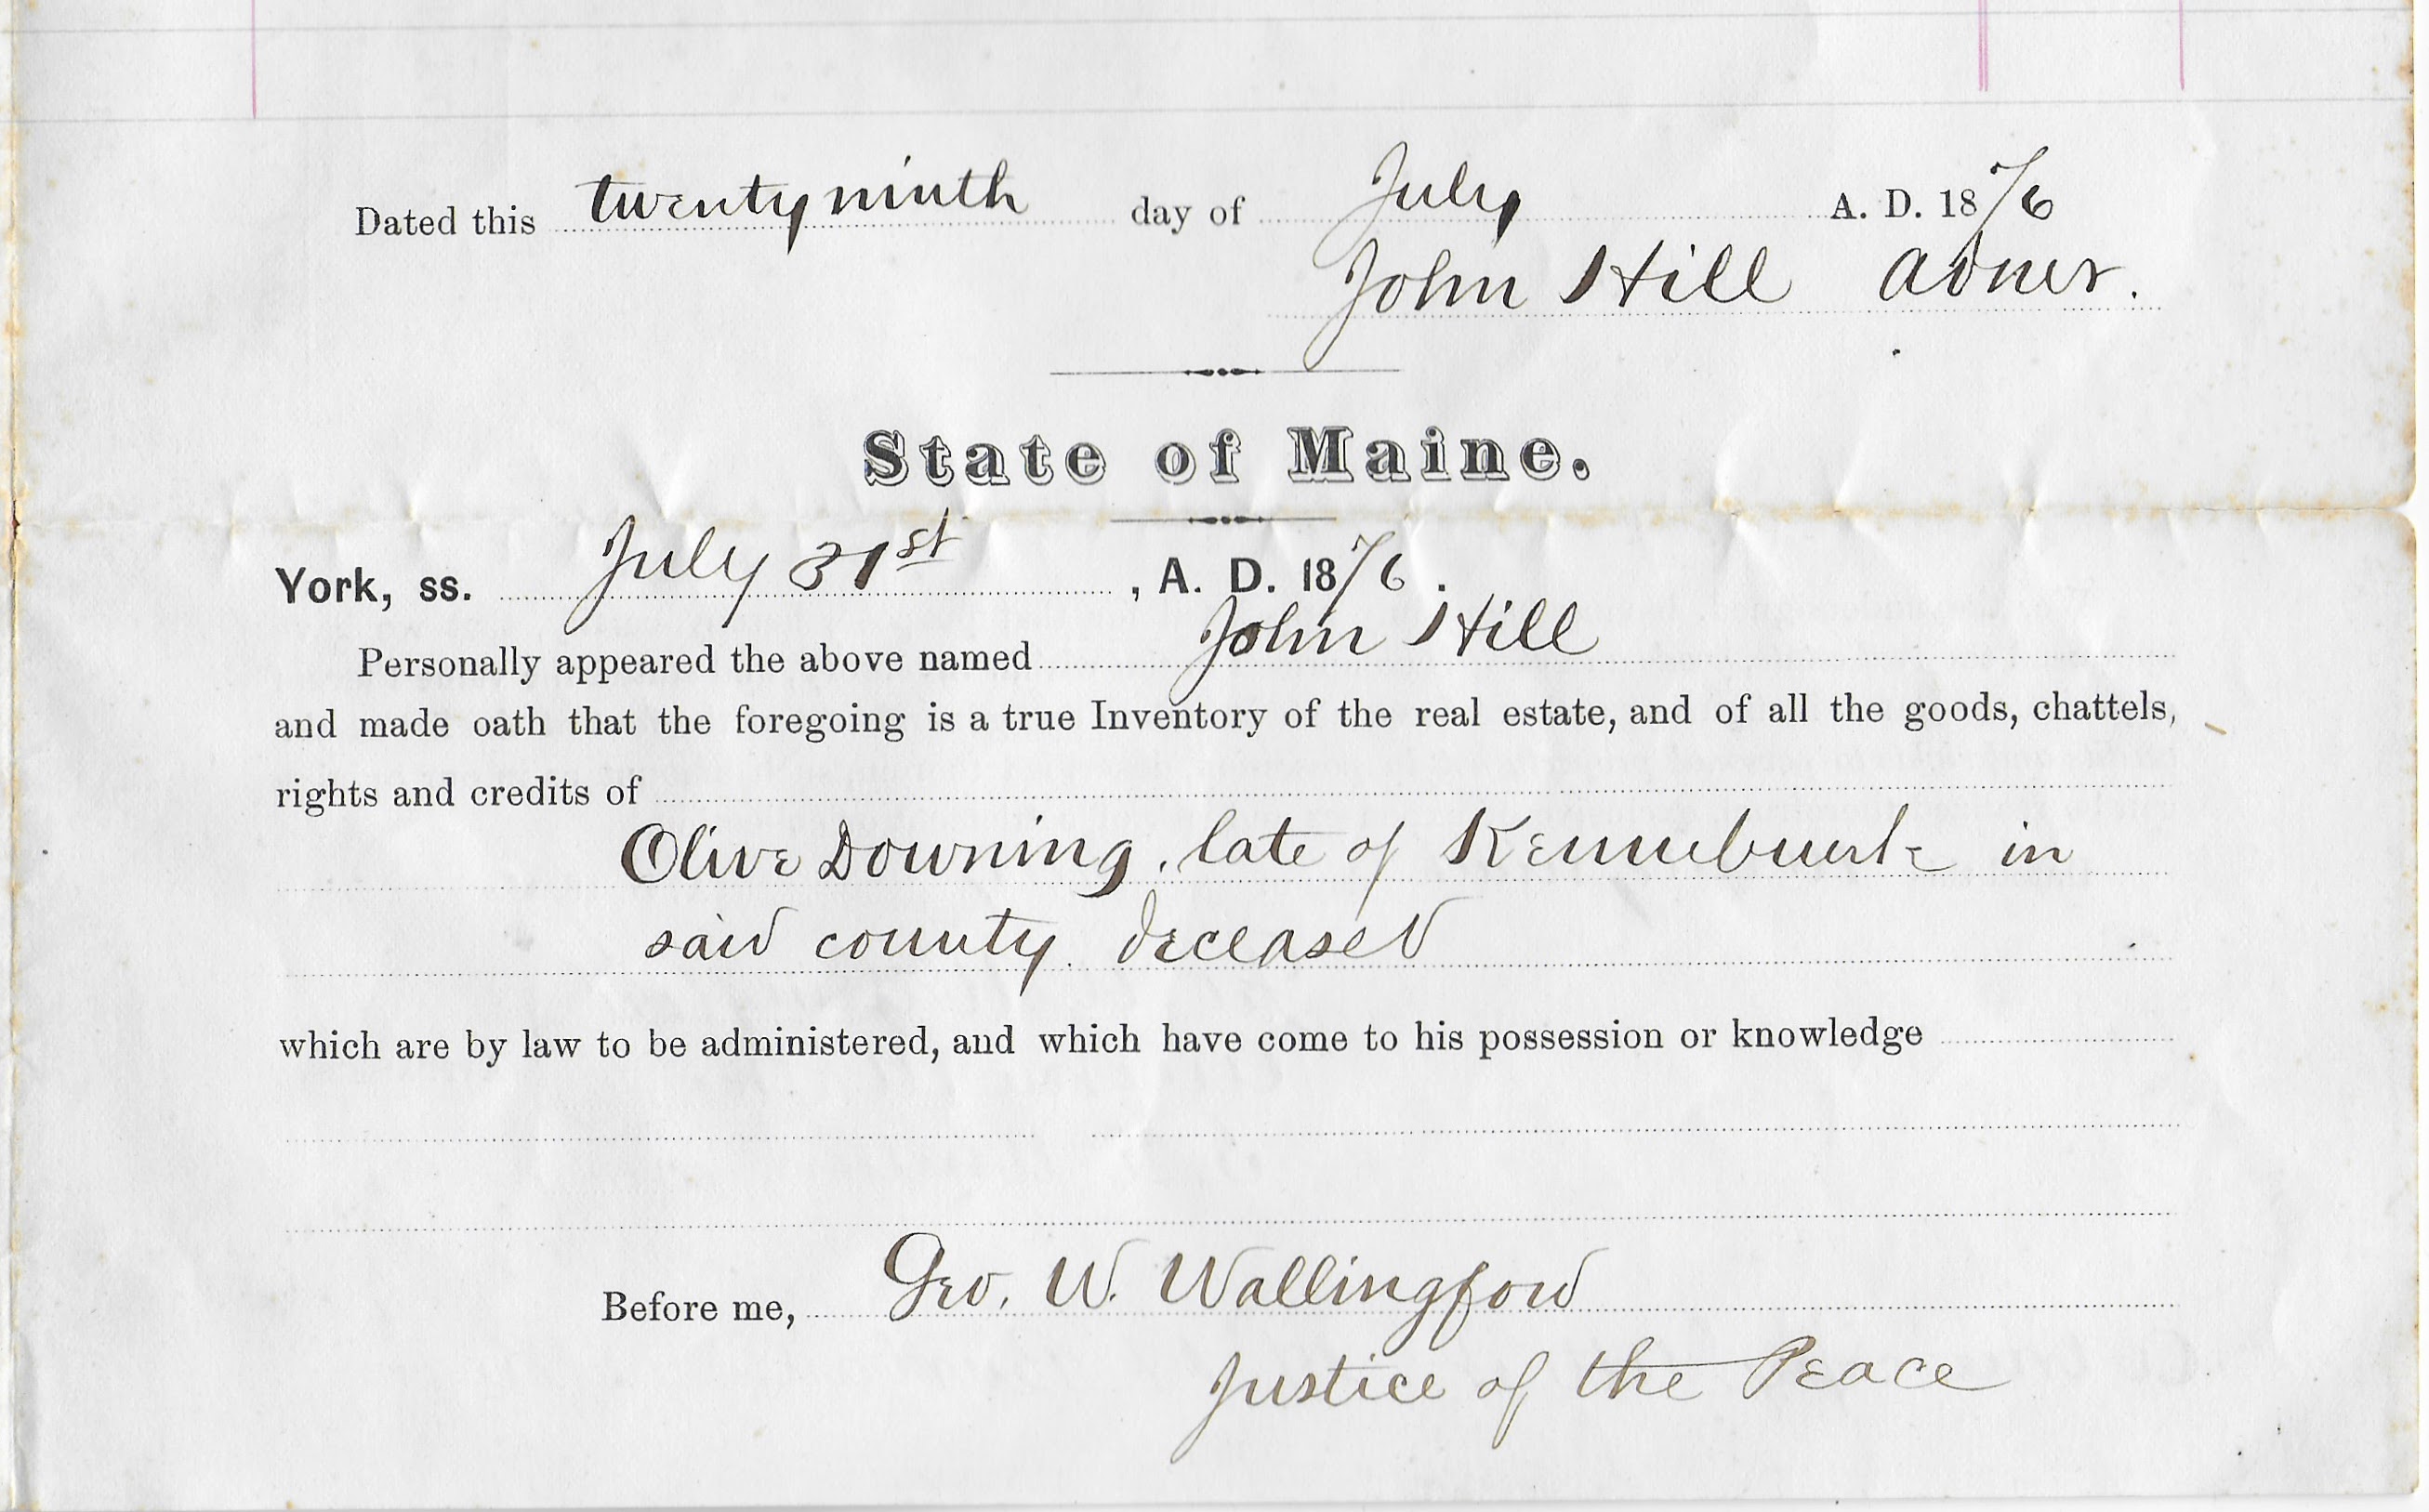 Dated this twenty ninth day of July A. D. 1876
John Hill Admr.
State of Maine.
York, ss. July 31st , A. D. 1876 .
Personally appeared the above named John Hill
and made oath that the foregoing is a true Inventory of the real estate, and of all the goods, chattels,
rights and credits of
Olive Downing, late of Kennebunk in
said county deceased
which are by law to be administered, and which have come to his possession or knowledge
Before me, Geo. W. Wallingford
Justice of the Peace